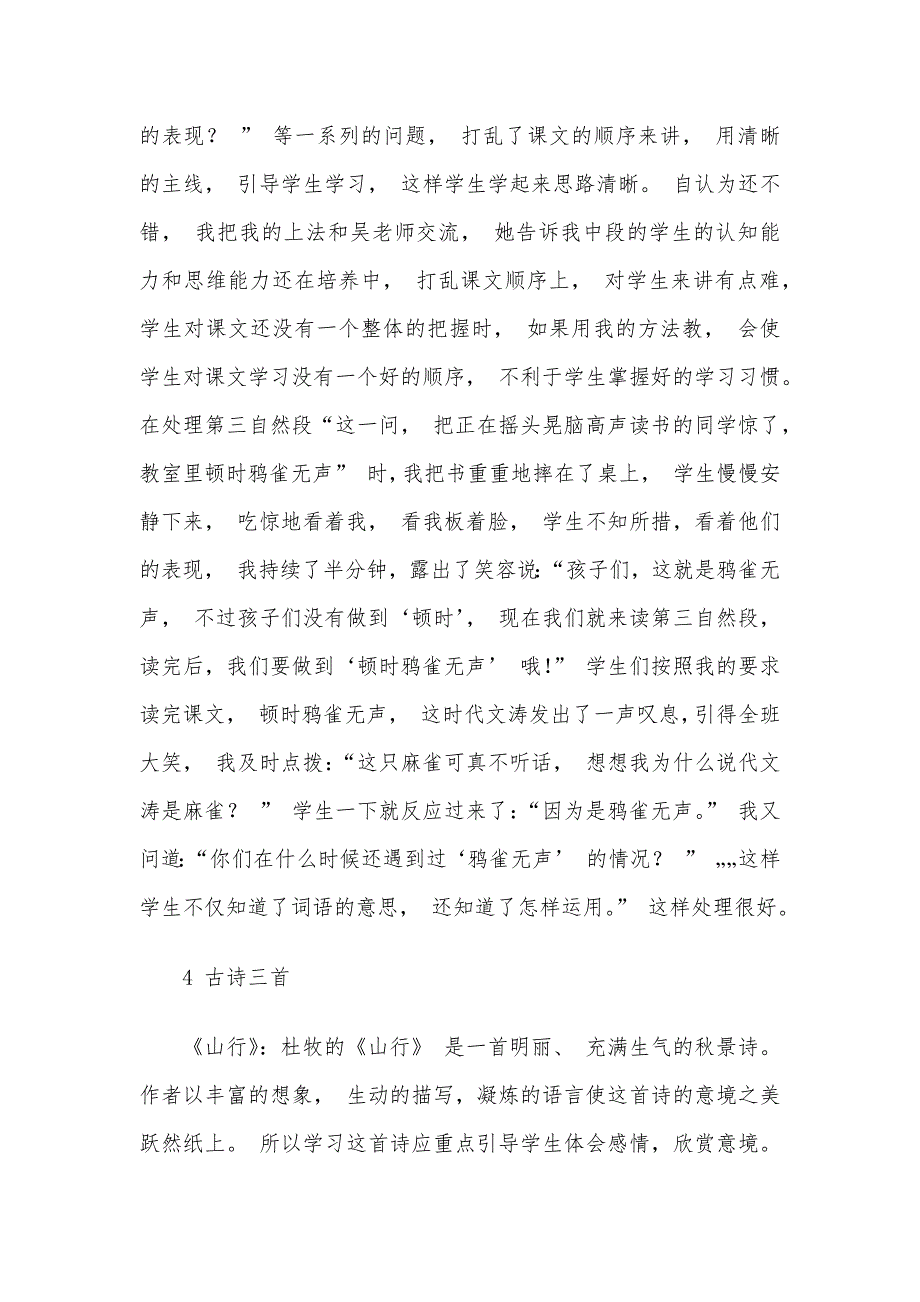 的表现？ ” 等一系列的问题， 打乱了课文的顺序来讲， 用清晰
的主线， 引导学生学习， 这样学生学起来思路清晰。 自认为还不
错， 我把我的上法和吴老师交流， 她告诉我中段的学生的认知能
力和思维能力还在培养中， 打乱课文顺序上， 对学生来讲有点难，
学生对课文还没有一个整体的把握时， 如果用我的方法教， 会使
学生对课文学习没有一个好的顺序， 不利于学生掌握好的学习习惯。
在处理第三自然段“这一问， 把正在摇头晃脑高声读书的同学惊了，
教室里顿时鸦雀无声” 时，我把书重重地摔在了桌上， 学生慢慢安
静下来， 吃惊地看着我， 看我板着脸， 学生不知所措，看着他们
的表现， 我持续了半分钟，露出了笑容说：“孩子们，这就是鸦雀无
声， 不过孩子们没有做到‘顿时’， 现在我们就来读第三自然段，
读完后，我们要做到‘顿时鸦雀无声’ 哦！” 学生们按照我的要求
读完课文， 顿时鸦雀无声， 这时代文涛发出了一声叹息，引得全班
大笑， 我及时点拨：“这只麻雀可真不听话， 想想我为什么说代文
涛是麻雀？ ” 学生一下就反应过来了：“因为是鸦雀无声。” 我又
问道：“你们在什么时候还遇到过‘鸦雀无声’ 的情况？ ” „„这样
学生不仅知道了词语的意思， 还知道了怎样运用。” 这样处理很好。
4 古诗三首
《山行》：杜牧的《山行》 是一首明丽、 充满生气的秋景诗。
作者以丰富的想象， 生动的描写，凝炼的语言使这首诗的意境之美
跃然纸上。 所以学习这首诗应重点引导学生体会感情，欣赏意境。